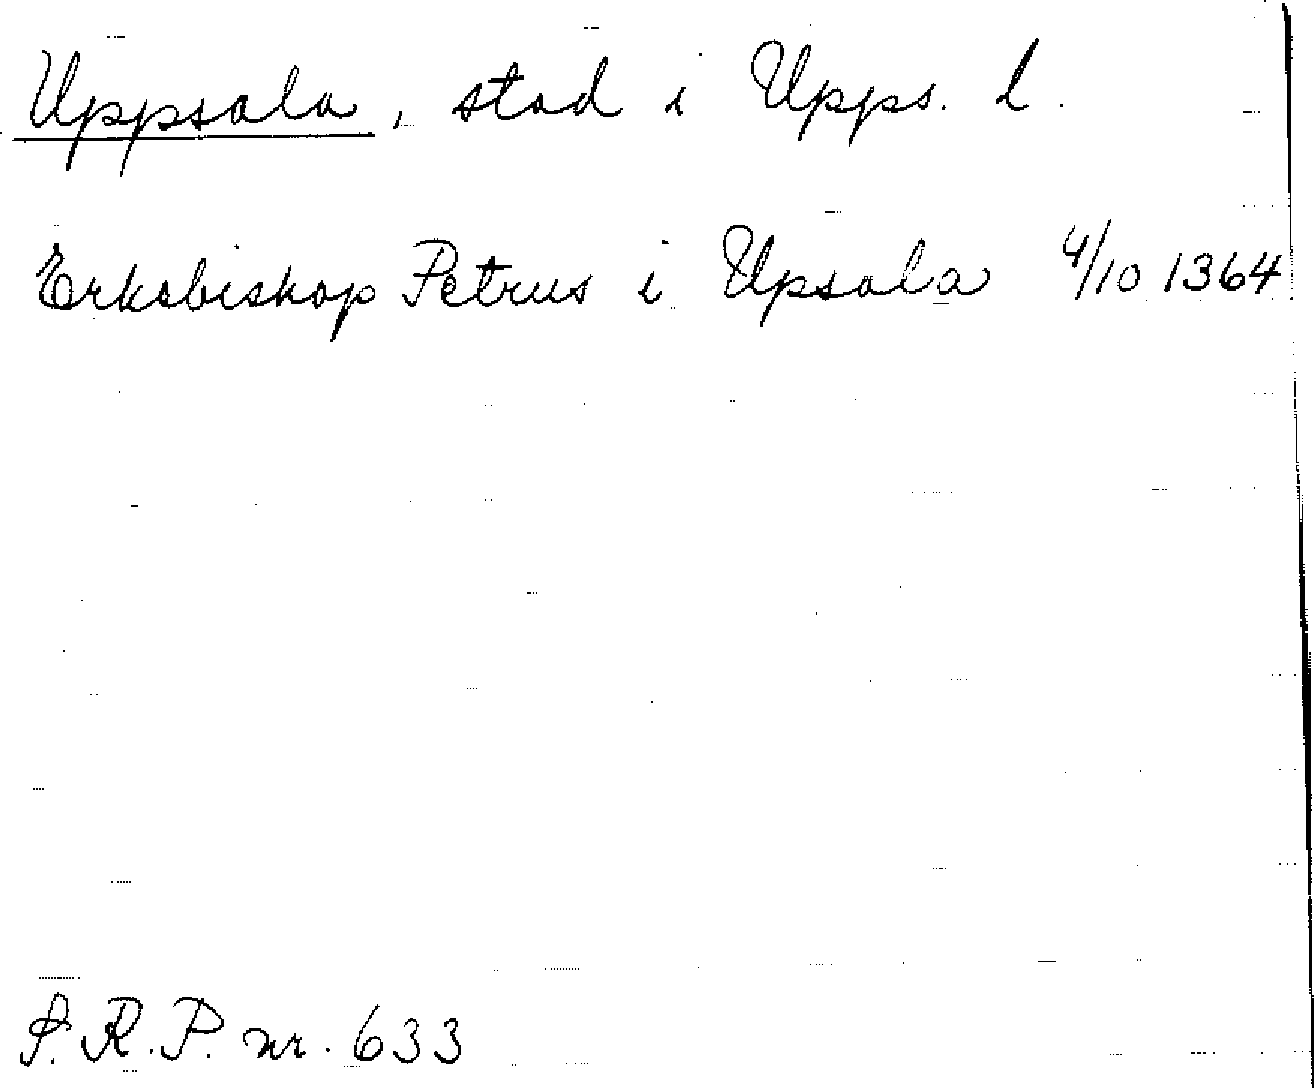 Uppsala, stad i Upps. l.
Erkebiskop Petrus i Upsala 4/10 1364
S.R.P. nr. 633